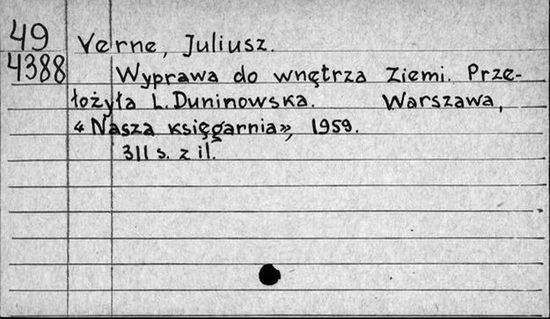 49 Verne, Juliusz.
4388 Wyprawa do wnętrza Ziemi. Prze-
łożyła L. Duninowska. Warszawa,
«Nasza księgarnia», 1959.
311 s. z il.